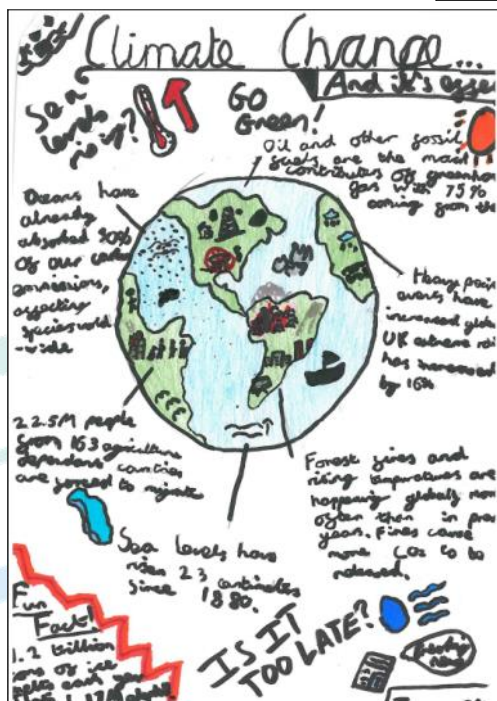 Climate Change...
And it's effe
Sea
levels
rising?
GO
Green!
Oil and other fossil
fuels are the main
contributers of greenhou
gas with 75%
coming from the
Oceans have
already
absorbed 90%
of our carbon
emmissions,
affecting
species world
-wide
Heavy
events have
increased globa
UK extreme
has increased
by 16%
22.5M people
from 163 agriculture
dependant countries
are forced to migrate
Forest fires and
rising temperatures are
happening globally mor
often than in prev
years. Fires cause
more CO2 to be
released.
Sea levels have
risen 23 centimetres
since 1880.
Fun
Fact!
1.2 trillion
ons of ice
melts each year
IS IT
TOO LATE?
Breaking
news